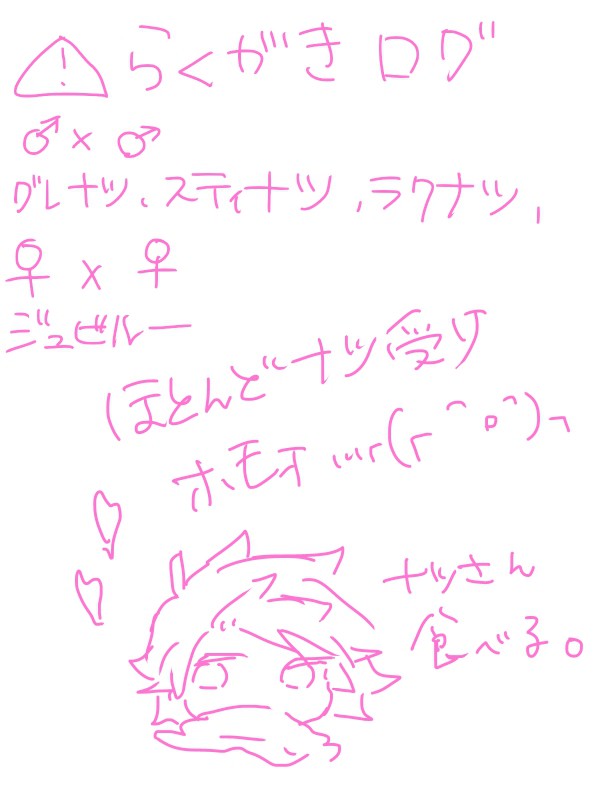 ⚠らくがきログ
♂×♂
グレナツ、スティナツ、ラクナツ、
♀×♀
ジュビルー
ほとんどナツ受け
ホモォ…┌(┌ ^o^)┐
ナツさん
食べる。